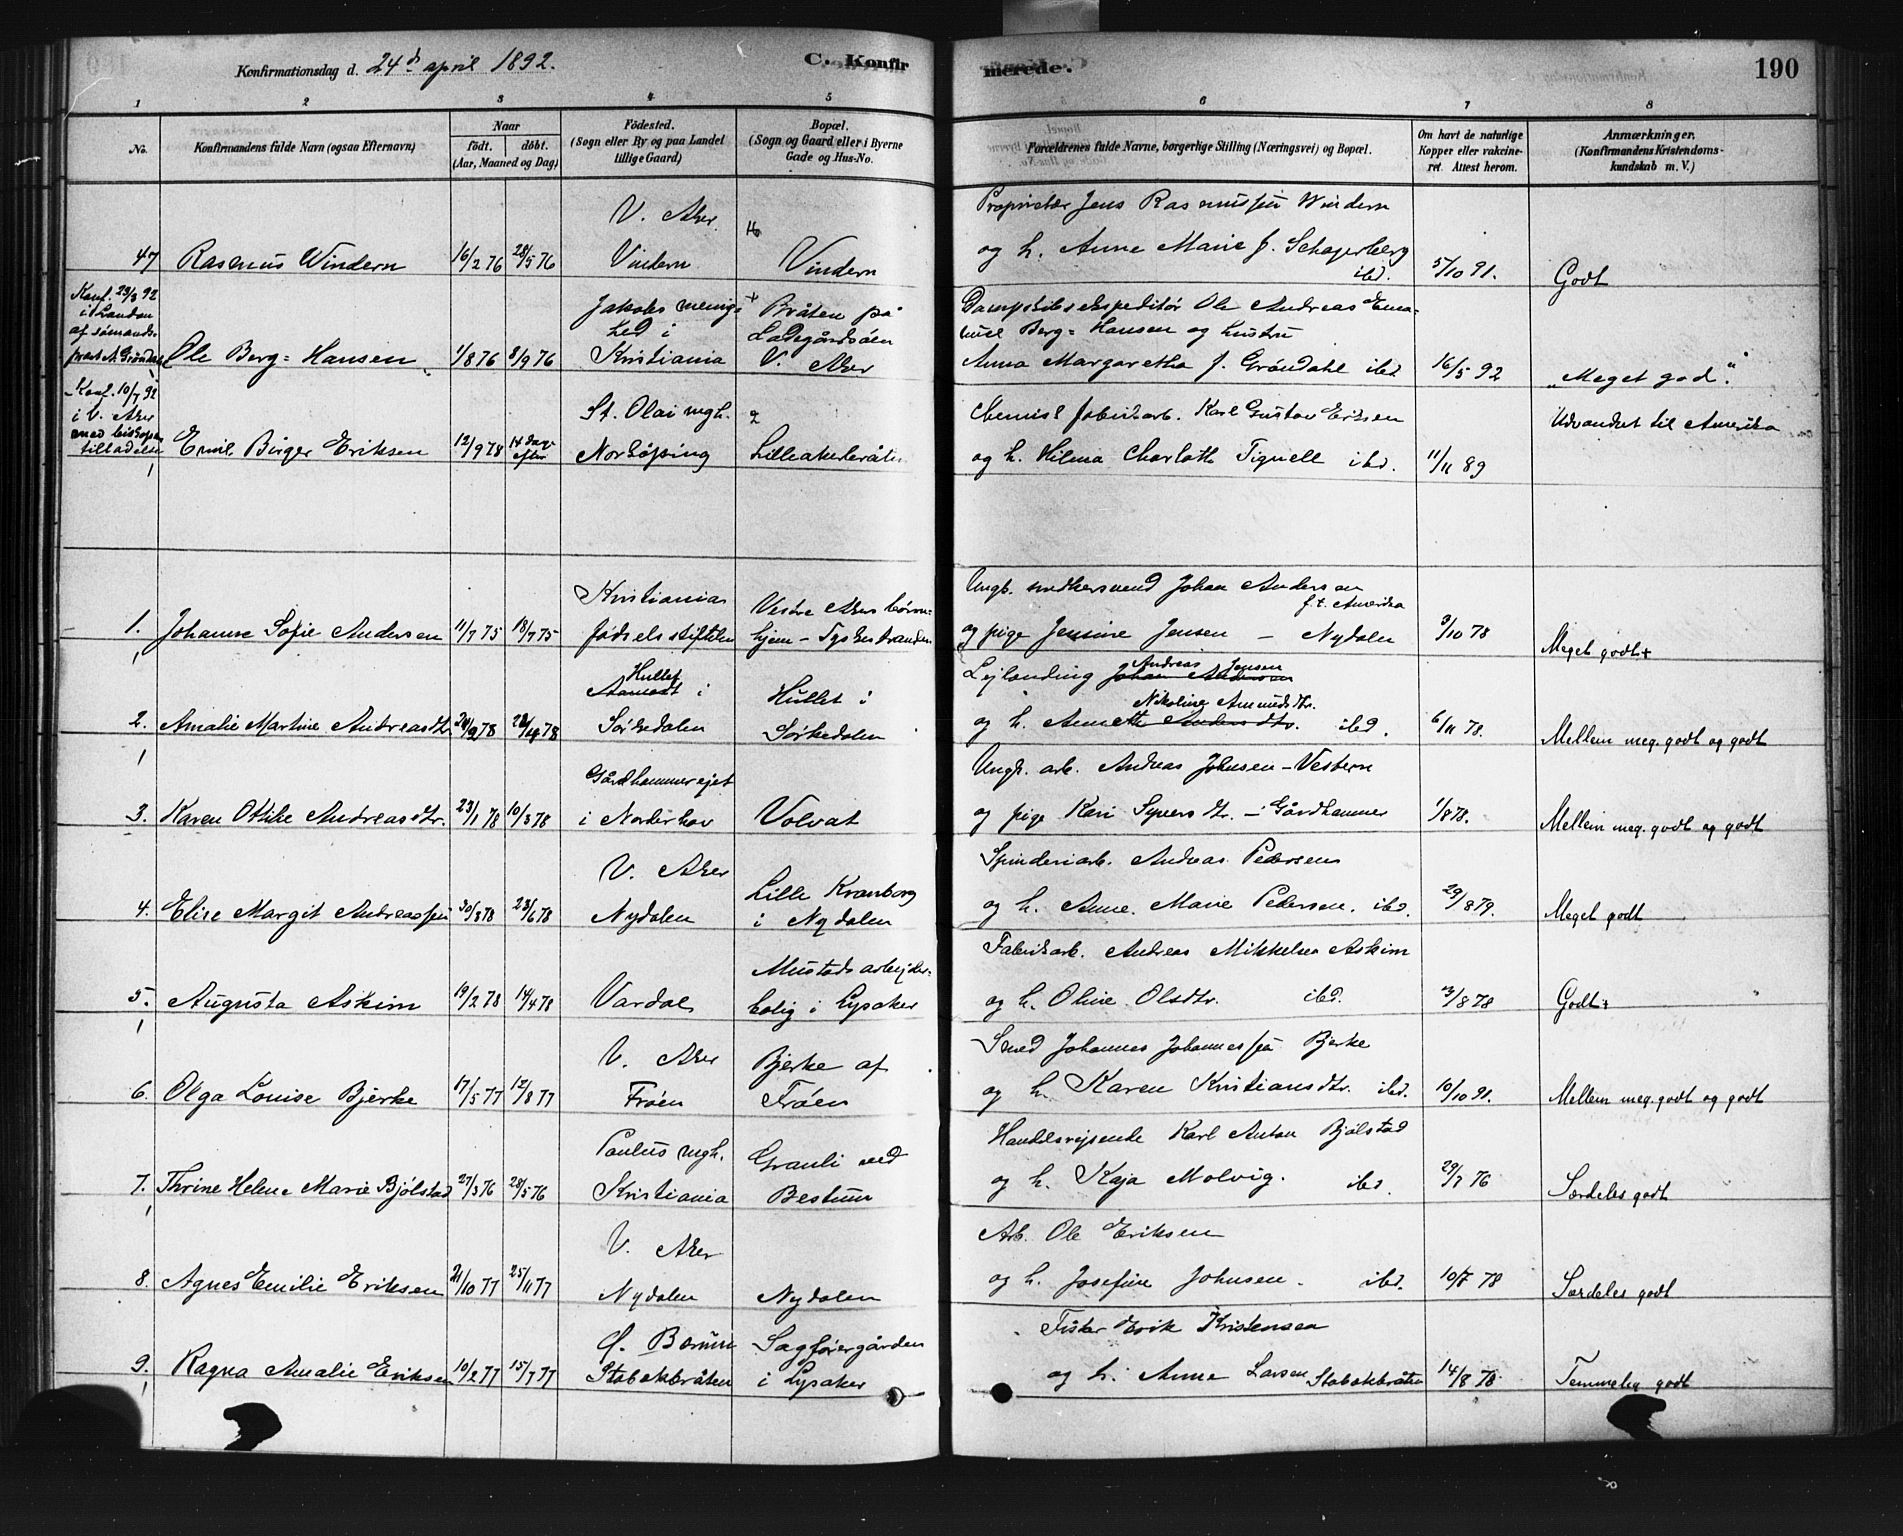 Konfirmationsdag d. 24d april 1892.
C. Konfirmerede.
190
1 2 3 4 5 6 7 8
No.
Konfirmandens fulde Navn (ogsaa Efternavn)
Naar
født. døbt.
(Aar, Maaned og Dag)
Fødested.
(Sogn eller By og paa Landet
tillige Gaard)
Bopæl.
(Sogn og Gaard eller i Byerne
Gade og Hus-No.
Forældrenes fulde Navne, borgerlige Stilling (Næringsvei) og Bopæl.
Om havt de naturlige
Kopper eller vakcine-
ret. Attest herom.
Anmærkninger.
(Konfirmandens Kristendoms-
kundskab m. V.)
47 Rasmus Windern 16/2 76 28/5 76
V. Aker
Vindern
Vindern
Proprietær Jens Rasmussen Windern
og h. Anne Marie f. Schagerberg
ibd.
5/10 91.
Godt
Konf. 23/3 92
i London
af sømands-
præst A. Grøndahl
Ole Berg=Hansen 1/8 76 8/9 76
Jakobs menig-
hed i
Kristiania
Bråten på
Ladegårdsøen
V. Aker
Dampskibsekspeditør Ole Andreas Ema-
nuel Berg=Hansen og hustru
Anna Margaretha f. Grøndahl ibd
16/5 92
"Meget god."
Konf. 10/7 92
i V. Aker
med biskopens
tilladelse
Emil Birger Eriksen 12/9 78 14 dage
efter
St. Olai mgh.
Norköping
2
Lilleakerbråten
Chemisk fabrikarb. Karl Gustav Eriksen
og h. Hilma Charlotte Tignell ibd.
11/11 89
Udvandret til Amerika
1. Johanne Sofie Andersen 11/7 75 18/7 75
Kristiania
fødselsstiftelse
Vestre Akers børne-
hjem - Tyskestranden
Ungk. snedkersvend Johan Andersen
f.t. Amerika
og pige Jensine Jensen - Nydalen
9/10 78
Meget godt+
2. Amalie Martine Andreasdtr. 24/2 78 28/4 78
Hullet
Aamodt i
Sørkedalen
Hullet i
Sørkedalen
Andreas Jensen
Lejlænding Johan Andersen
Nikoline Amundsdtr.
og h. Anneth Andersdtr. ibd.
6/11 78.
Mellem meg. godt og godt
3. Karen Othilie Andreasdtr. 23/1 78 10/3 78
Gårdhammerejet
i Norderhov
Volvat
Ungk. arb. Andreas Johnsen - Vestern
og pige Kari Syversdtr. - Gårdhammer
1/8 78.
Mellem meg. godt og godt
4. Elise Margit Andreassen 30/3 78 23/6 78
V. Aker
Nydalen
Lille Kranborg
i Nydalen
Spinderiarb. Andreas Pedersen
og h. Anne Marie Pedersen. ibd.
29/8 79.
Meget godt
5. Augusta Askim 19/2 78 14/4 78
Vardal
Mustads arbejder-
bolig i Lysaker
Fabrikarb. Andreas Mikkelsen Askim
og h. Oline Olsdtr. ibd.
13/8 78
Godt+
6. Olga Louise Bjerke 17/5 77 12/8 77
V. Aker
Frøen
Bjerke af
Frøen
Smed Johannes Johannessen Bjerke
og h. Karen Kristiansdtr. ibd.
10/10 91.
Mellem meg. godt og godt
7. Thrine Helene Marie Bjølstad 27/3 76 28/5 76
Paulus mgh.
Kristiania
Granli ved
Bestum
Handelsrejsende Karl Anton Bjølstad
og h. Kaja Molvig. ibd.
29/7 76
Særdeles godt
8. Agnes Emilie Eriksen 21/10 77 25/11 77
V. Aker
Nydalen
Nydalen
Arb. Ole Eriksen
og h. Josefine Johnsen. ibd.
10/7 78
Særdeles godt
9. Ragna Amalie Eriksen 10/2 77 15/7 77
Ø. Bærum
Stabekbråten
Sagførergården
i Lysaker
Fisker Erik Kristensen
og h. Anne Larsen Stabekbråten
14/8 78
Temmelig godt